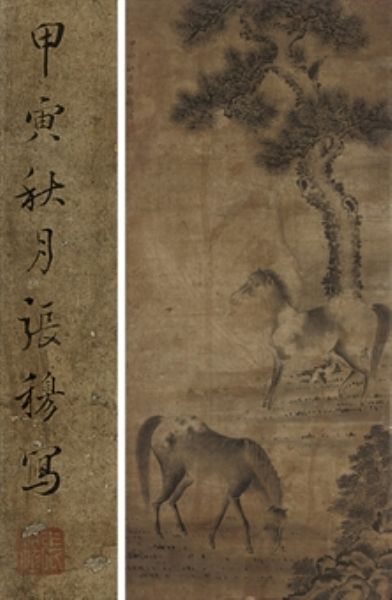 甲寅秋月張穆寫